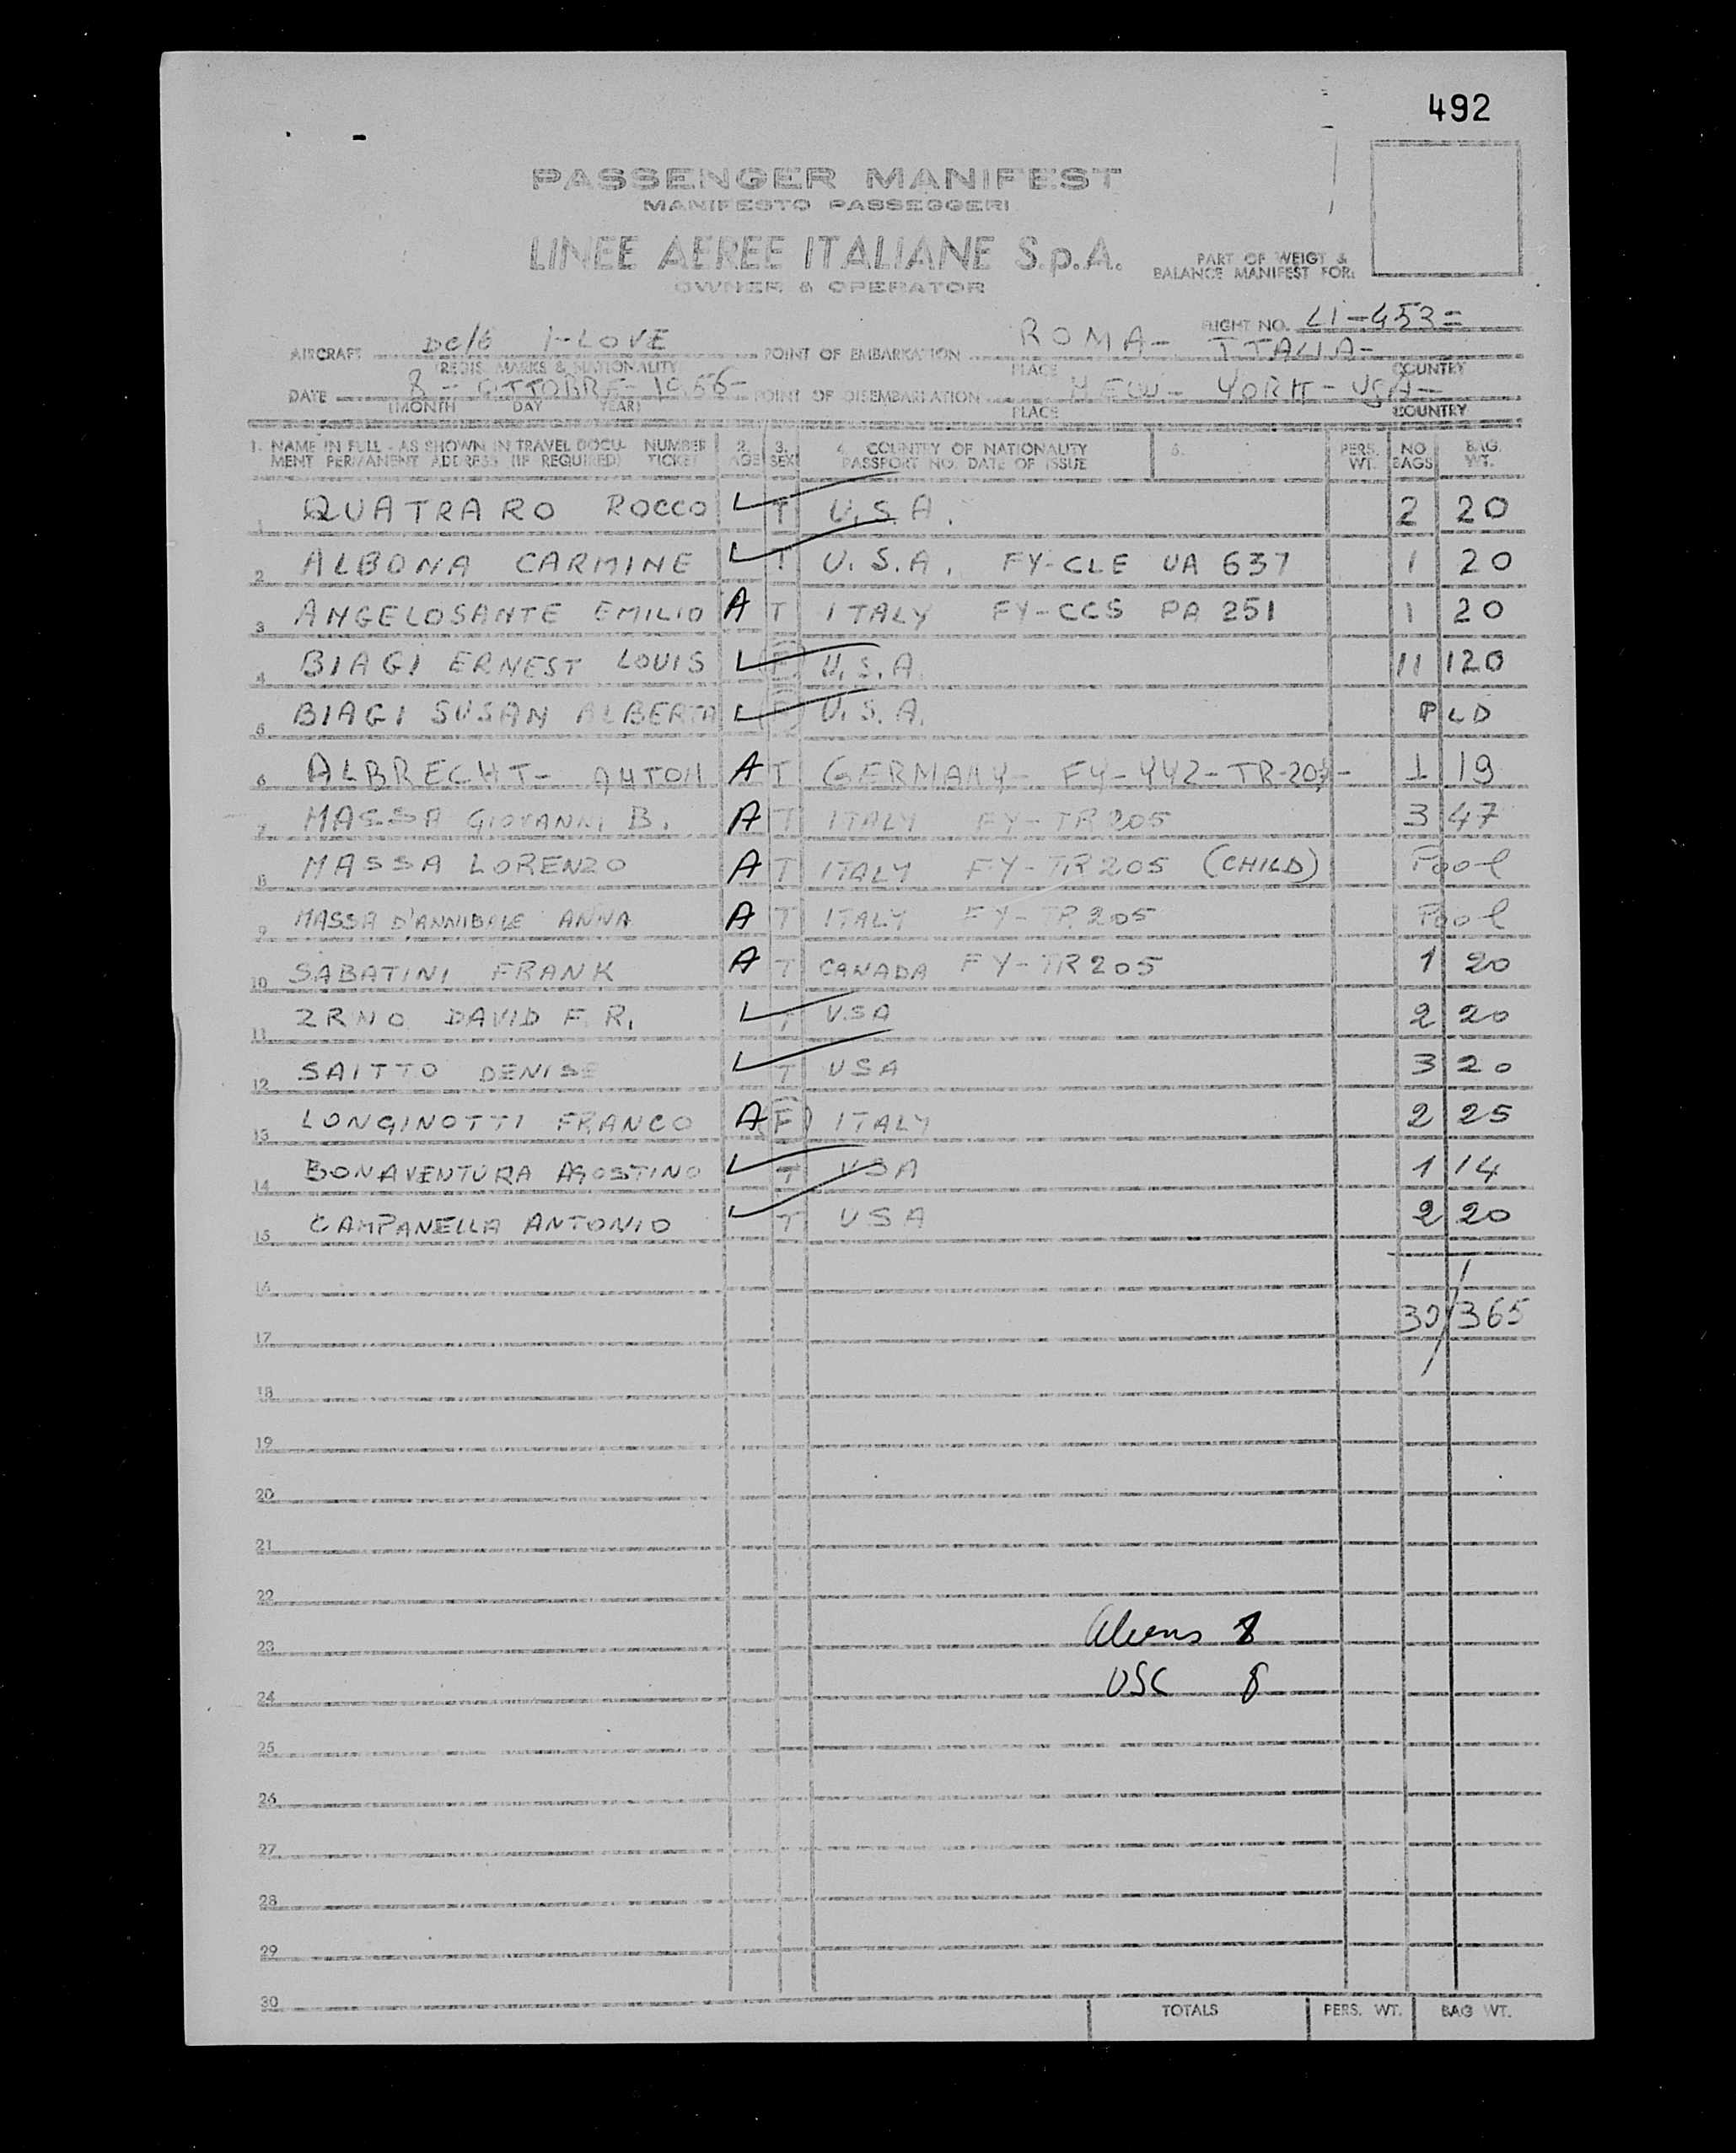 492
PASSENGER MANIFEST
MANIFESTO PASSEGGERI
LINEE AEREE ITALIANE S.p.A.
OWNER & OPERATOR
PART OF WEIGT &
BALANCE MANIFEST FOR:
FLIGHT NO. LI-453=
AIRCRAFT DC/6 I-LOVE POINT OF EMBARKATION ROMA- ITALIA-
(REGIS. MARKS & NATIONALITY PLACE COUNTRY
DATE 8 - OTTOBRE - 1956- POINT OF DISEMBARKATION NEW- YORK - USA-
(MONTH DAY YEAR) PLACE COUNTRY
1. NAME IN FULL - AS SHOWN IN TRAVEL DOCU- NUMBER 2. 3. 4. COUNTRY OF NATIONALITY 5. PERS. NO BAG.
MENT PERMANENT ADDRESS (IF REQUIRED) TICKET AGE SEX PASSPORT NO. DATE OF ISSUE WT. BAGS WT.
1 QUATRARO ROCCO T U.S.A. 2 20
2 ALBONA CARMINE T U.S.A. FY-CLE UA 637 1 20
3 ANGELOSANTE EMILIO A T ITALY FY-CCS PA 251 1 20
4 BIAGI ERNEST LOUIS (F) U.S.A. 11 120
5 BIAGI SUSAN ALBERTA (F) U.S.A. PLD
6 ALBRECHT- ANTON A T GERMANY- FY-YYZ-TR-205- 1 19
7 MASSA GIOVANNI B. A T ITALY FY-TR205 3 47
8 MASSA LORENZO A T ITALY FY-TR205 (CHILD) Pool
9 MASSA D'ANNIBALE ANNA A T ITALY FY-TR205 Pool
10 SABATINI FRANK A T CANADA FY-TR205 1 20
11 ZRNO DAVID F. R. T USA 2 20
12 SAITTO DENISE T USA 3 20
13 LONGINOTTI FRANCO A (F) ITALY 2 25
14 BONAVENTURA AGOSTINO T USA 1 14
15 CAMPANELLA ANTONIO T USA 2 20
16
30/365
17
18
19
20
21
22
23 Aliens 8
24 USC 8
25
26
27
28
29
30
TOTALS PERS. WT. BAG WT.